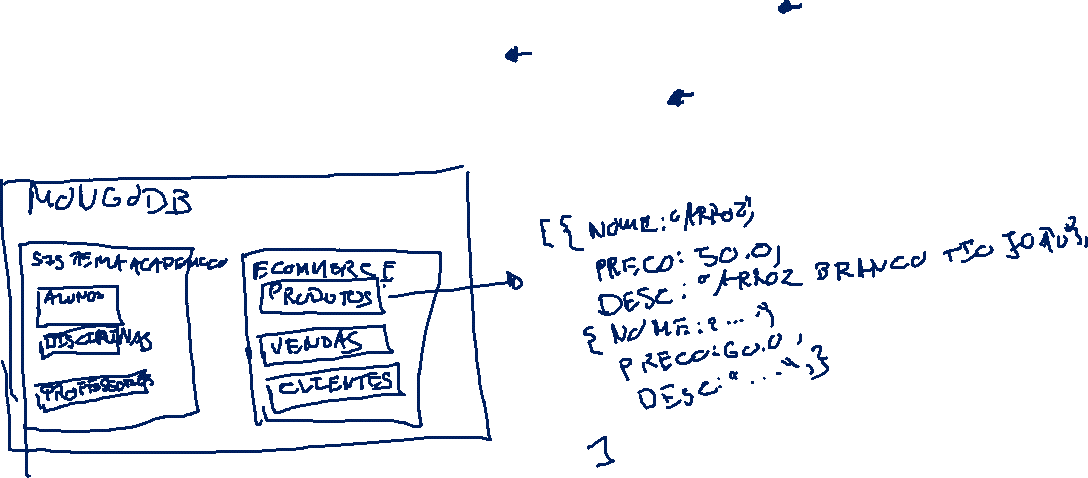 MONGODB
SISTEMA ACADEMICO
ALUNOS
DISCIPLINAS
PROFESSORES
ECOMMERCE
PRODUTOS
VENDAS
CLIENTES
[{ NOME: "ARROZ",
PRECO: 50.0,
DESC: "ARROZ BRANCO TIO JOÃO"},
{ NOME: "..."
PRECO: 60.0,
DESC: "...",}
]